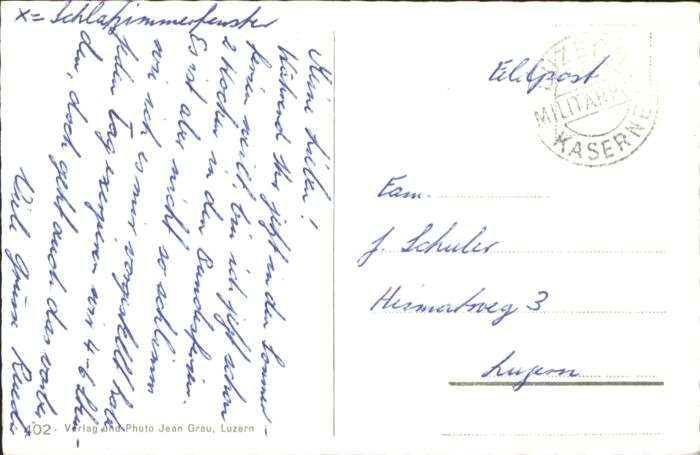 x = Schlafzimmerfenster
Meine Lieben!
Während Ihr jetzt in den Sommer-
ferien weilt, bin ich jetzt schon
2 Wochen in den Bundesferien.
Es ist aber nicht so schlimm
wie ich es mir vorgestellt habe
Jeden Tag exerzieren wir 4-6 Stun-
den, doch geht auch das vorbei.
Viele Grüsse Ruedi
402 Verlag und Photo Jean Grau, Luzern
Feldpost
MILITÄR
KASERNE
Fam.
J. Schuler
Heimatweg 3
Luzern